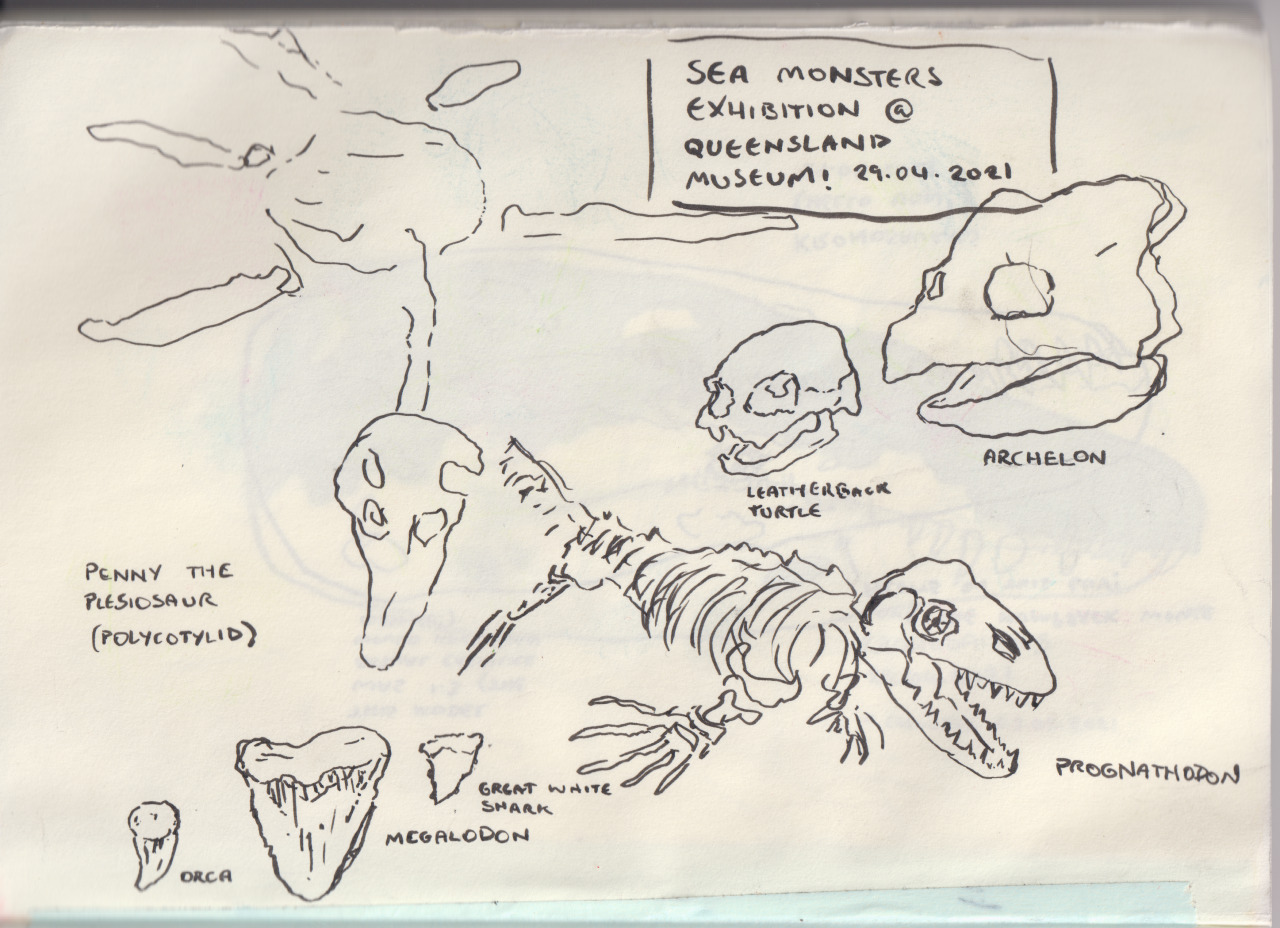 SEA MONSTERS
EXHIBITION @
QUEENSLAND
MUSEUM! 29.04.2021
ARCHELON
LEATHERBACK
TURTLE
PENNY THE
PLESIOSAUR
(POLYCOTYLID)
PROGNATHODON
GREAT WHITE
SHARK
MEGALODON
ORCA